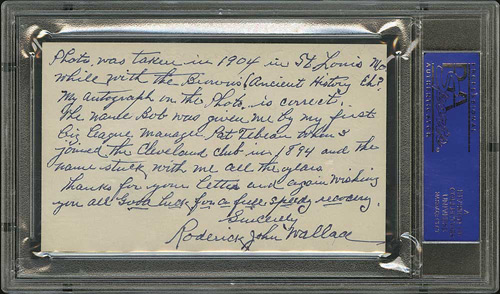 Photo was taken in 1904 in St Louis Mo.
while with the Browns (Ancient History Eh?
My autograph on the Photo. is correct.
The name Bob was given me by my first
Big League manager Pat Tebeau when I
joined the Cleveland club in 1894 and the
name stuck with me all the years
Thanks for your letter and again wishing
you all Good luck for a full speedy recovery.
Sincerely
Roderick John Wallace
PSA